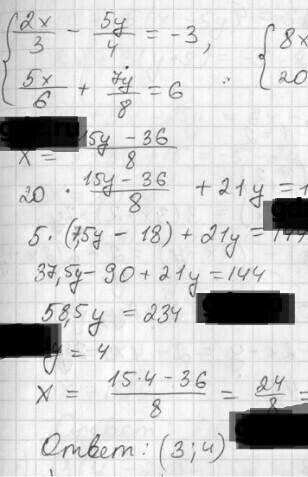 2x/3 - 5y/4 = -3, { 8x
5x/6 + 7y/8 = 6 20
x = (15y - 36)/8
20 · (15y - 36)/8 + 21y = 1
5 · (7,5y - 18) + 21y = 144
37,5y - 90 + 21y = 144
58,5y = 234
y = 4
x = (15·4 - 36)/8 = 24/8 =
Ответ: (3; 4)